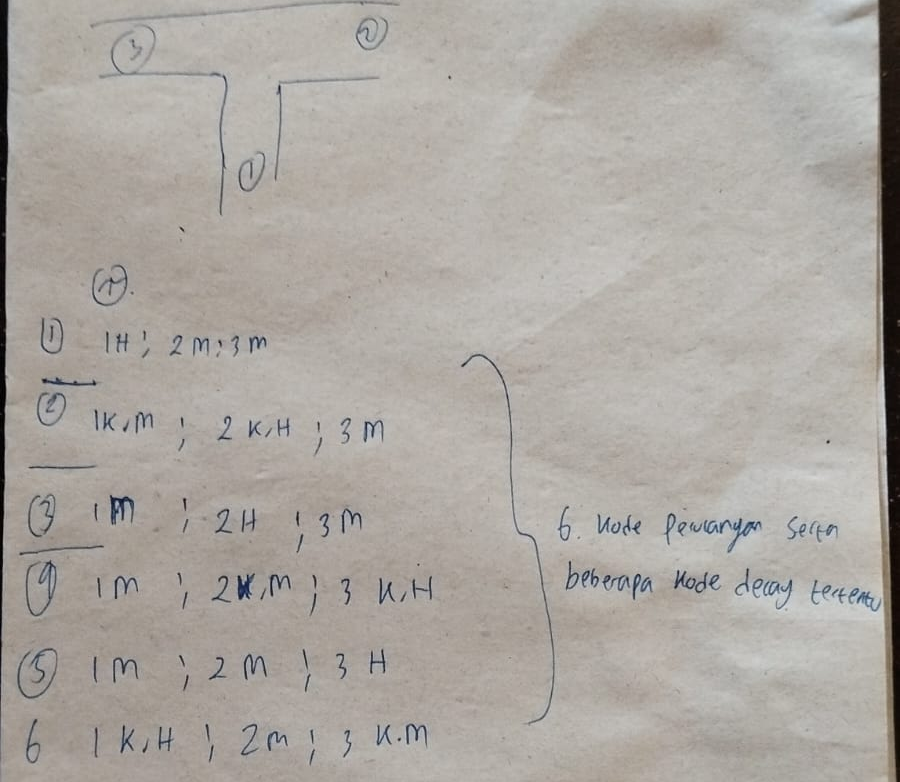 3
2
1
1.
1 1H ; 2M ; 3M
2 1K,M ; 2K,H ; 3M
3 1M ; 2H ; 3M
4 1M ; 2K,M ; 3K,H
5 1M ; 2M ; 3H
6 1K,H ; 2M ; 3K.M
6. Kode Pewarangan serta
beberapa Kode decay tertentu